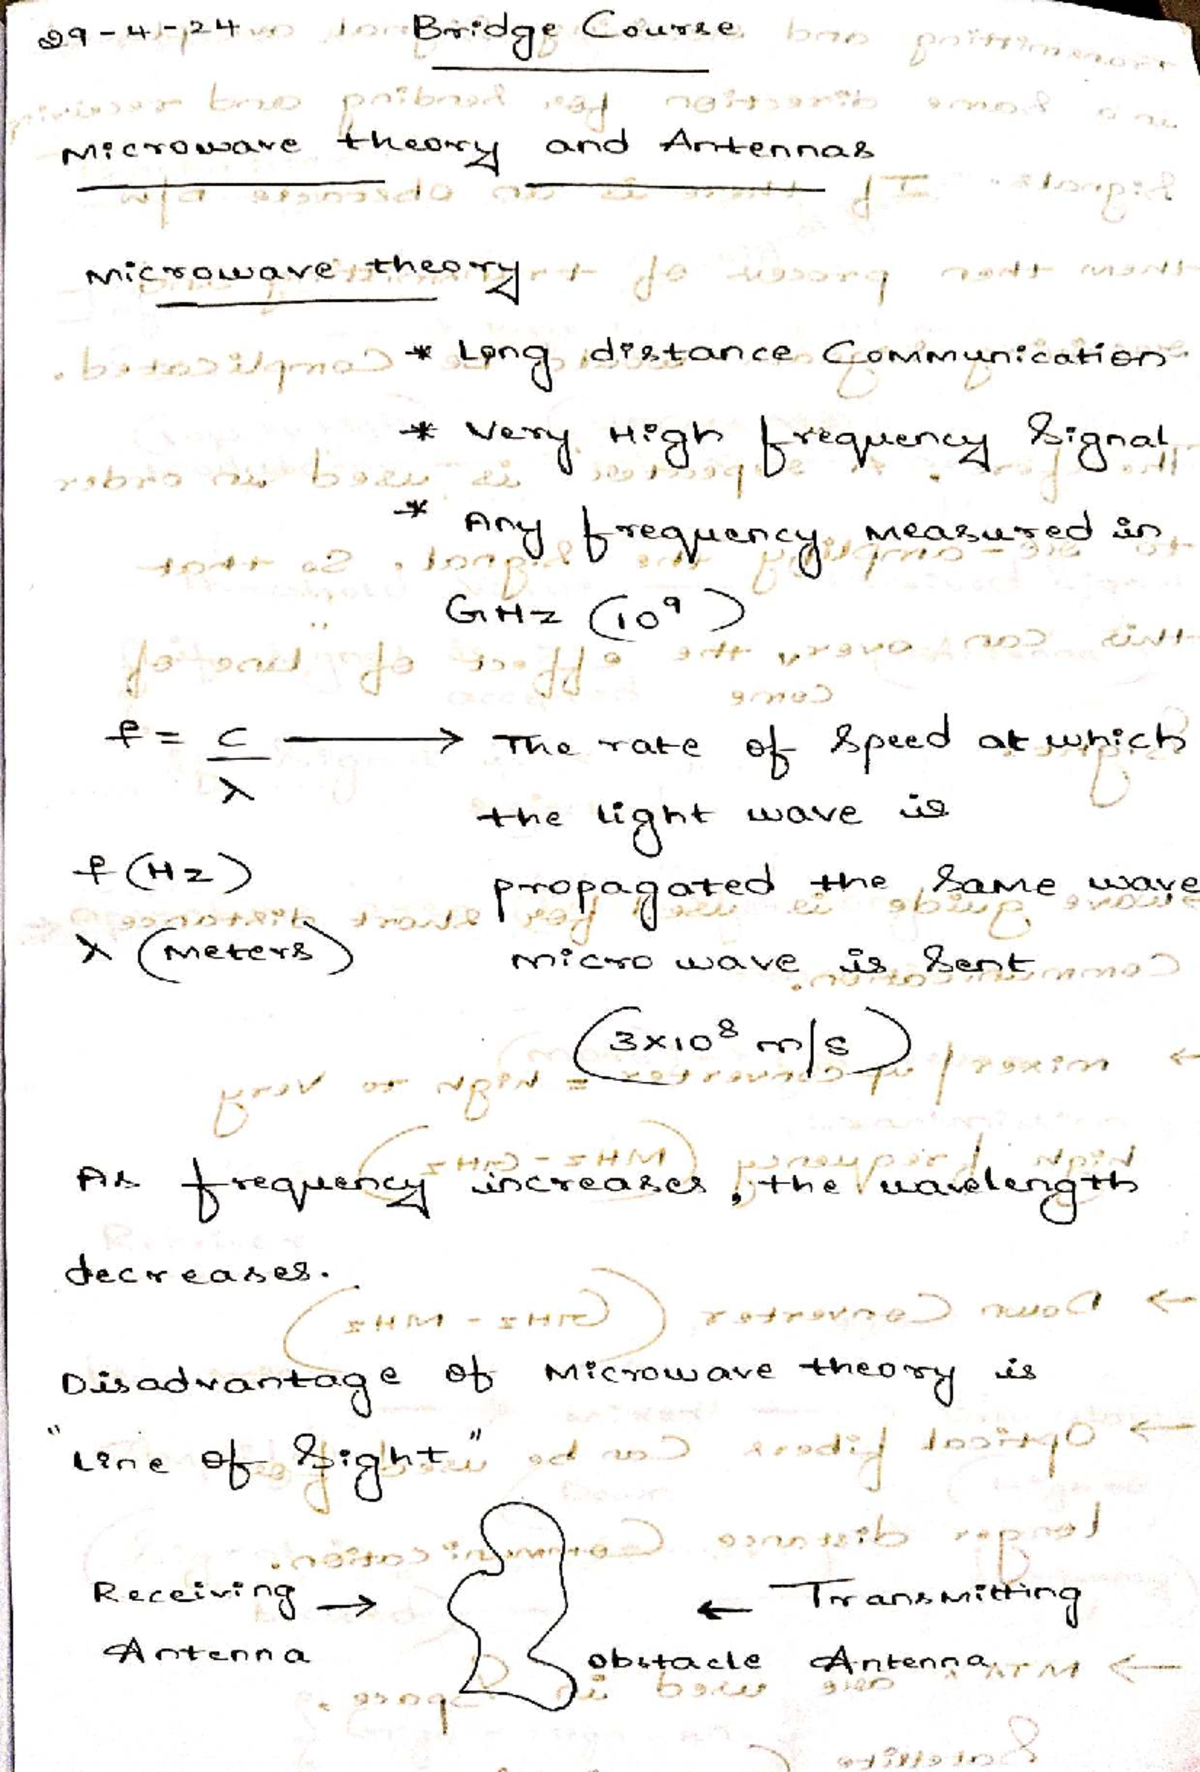 29-4-24 Bridge Course
Microwave theory and Antennas
Microwave theory
* Long distance Communication
* Very High frequency Signal
* Any frequency measured in
GHz (10⁹)
f = c/λ → The rate of Speed at which
the light wave is
f (Hz) propagated the Same wave
λ (meters) micro wave is Sent
(3x10⁸ m/s)
As frequency increases, the wavelength
decreases.
Disadvantage of Microwave theory is
"Line of Sight"
Receiving → ← Transmitting
Antenna obstacle Antenna